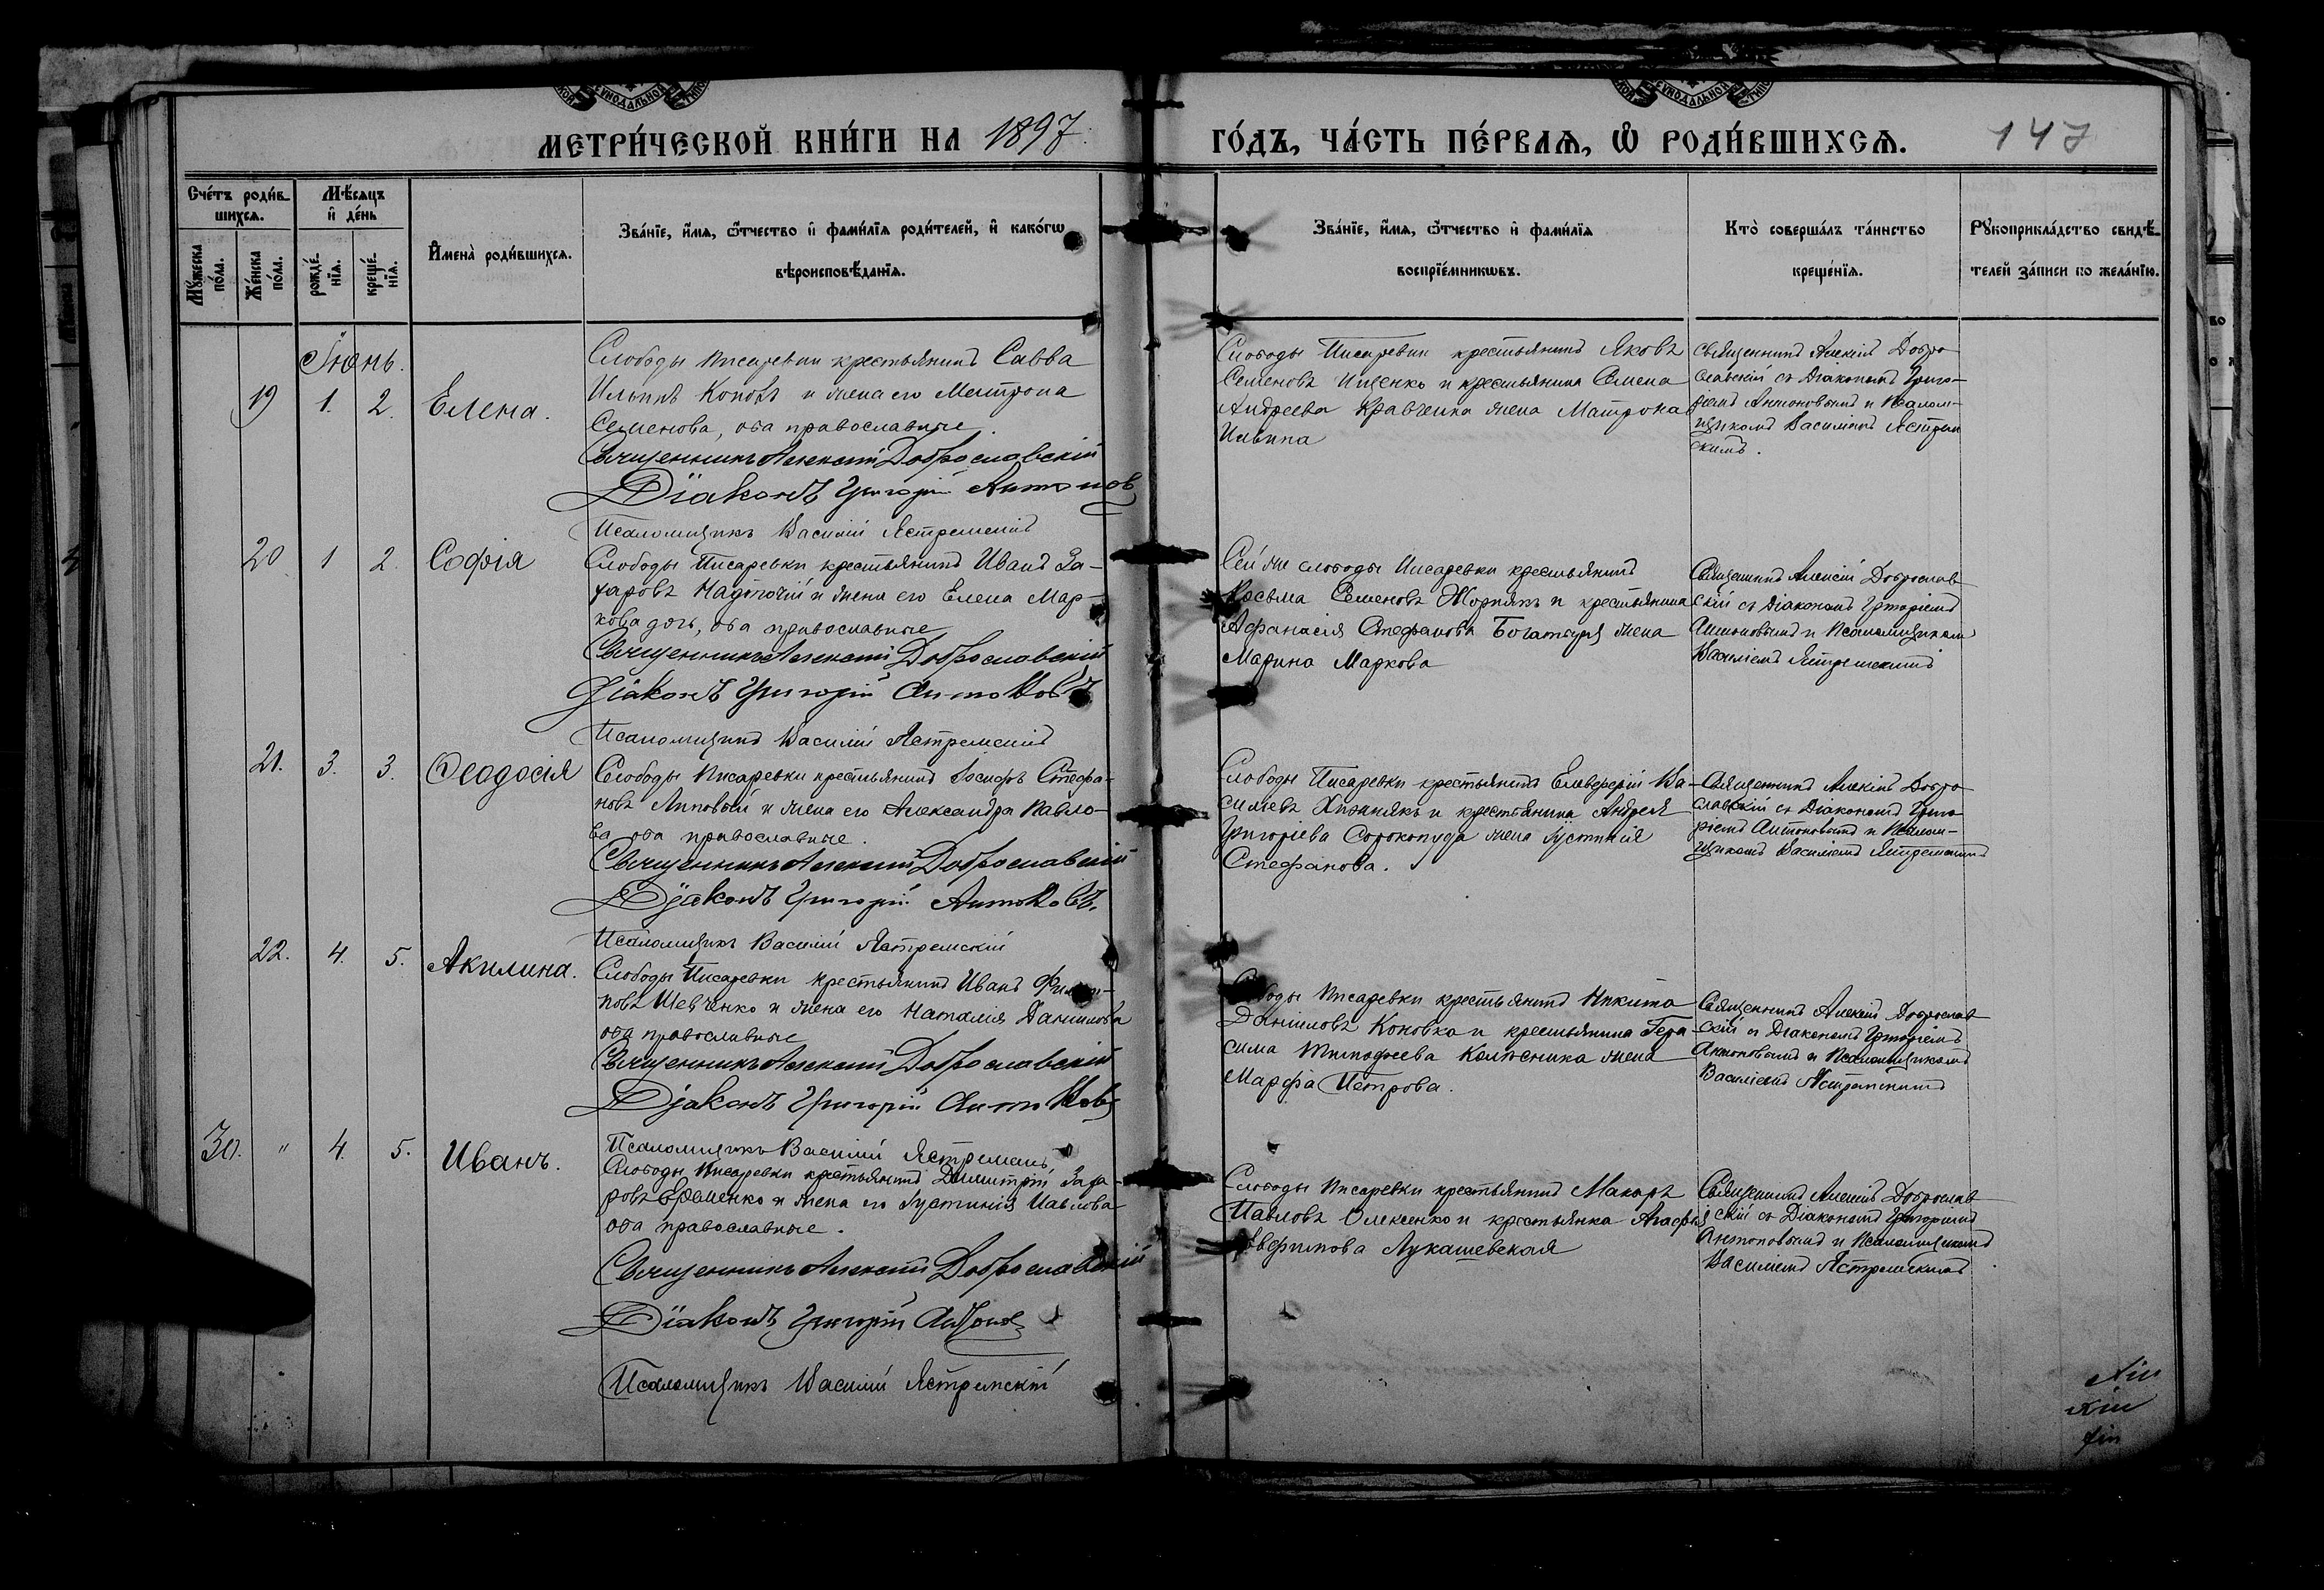 МЕТРИ́ЧЕСКОЙ КНИ́ГИ НА 1897
ГО́ДЪ, ЧА́СТЬ ПЕ́РВАѦ, Ѡ РОДИ́ВШИХСѦ.
147
Сче́тъ роди́в-
шихсѧ.
Мѣ́сѧцъ
и҆ де́нь
Мꙋ́жеска
по́ла.
Же́нска
по́ла.
рожде́-
нїѧ.
креще́-
нїѧ.
И҆мена̀ роди́вшихсѧ.
Зва́нїе, и҆́мѧ, ѻ҆́тчество и҆ фами́лїѧ роди́телей, и҆ како́гѡ
вѣроисповѣ́данїѧ.
Зва́нїе, и҆́мѧ, ѻ҆́тчество и҆ фами́лїѧ
воспрїе́мникѡвъ.
Кто̀ соверша́лъ та́инство
креще́нїѧ.
Рꙋкоприкла́дство свидѣ́-
телей за́писи по жела́нїю.
Іюнь.
19 1. 2. Елена.
Слободы Писаревки крестьянинъ Савва
Ильинъ и жена его Матрона
Семенова, оба православные.
Священникъ Алексій Доброславскій
Діаконъ Григорій Антонов
Псаломщикъ Василій Ястремскій
Слободы Писаревки крестьянинъ Яковъ
Семеновъ Ищенко и крестьянина Семена
Андреева Кравченка жена Матрона
Ильина
Священникъ Алексій Добро
славскій съ Діакономъ Григо-
ріемъ Антоновымъ и Псалом-
щикомъ Василіемъ Ястрем
скимъ.
20 1 2. Софія
Слободы Писаревки крестьянинъ Иванъ За-
харовъ и жена его Елена Мар-
кова дочь, оба православные
Священникъ Алексій Доброславскій
Діаконъ Григорій Антоновъ
Псаломщикъ Василій Ястремскій
Сей же слободы Писаревки крестьянинъ
Косьма Семеновъ Жорнякъ и крестьянина
Афанасія Стефанова Богатыря жена
Марина Маркова
Священникъ Алексій Доброслав
скій съ Діакономъ Григоріемъ
Антоновымъ и Псаломщикомъ
Василіемъ Ястремскимъ
21. 3. 3. Ѳеодосія
Слободы Писаревки крестьянинъ Іосифъ Стефа-
новъ Липовый и жена его Александра Павло-
ва оба православные.
Священникъ Алексій Доброславскій
Діаконъ Григорій Антоновъ.
Псаломщикъ Василій Ястремскій
Слободы Писаревки крестьянинъ Елевферій Ва-
сильевъ Хижнякъ и крестьянина Андрея
Григорьева Сорокопуда жена Іустинія
Стефанова.
Священникъ Алексій Добро
славскій съ Діакономъ Григо
ріемъ Антоновымъ и Псалом-
щикомъ Василіемъ Ястремскимъ
22. 4. 5. Акилина.
Слободы Писаревки крестьянинъ Иванъ
повъ Шевченко и жена его Наталія Даніилова
оба православные
Священникъ Алексій Доброславскій
Діаконъ Григорій Антоновъ
Псаломщикъ Василій Ястремскій
Писаревки крестьянинъ Никита
Даніиловъ Коновка и крестьянина Гера
сима Тимофеева Колѣсника жена
Марфа Петрова.
Священникъ Алексій Доброслав
скій съ Діакономъ Григоріемъ
Антоновымъ и Псаломщикомъ
Василіемъ Ястремскимъ
30. " 4. 5. Иванъ.
Слободы Писаревки крестьянинъ Димитрій Заха-
ровъ и жена его Іустинія Павлова
оба православные.
Священникъ Алексій Доброславскій
Діаконъ Григорій Антонов
Псаломщикъ Василій Ястремскій
Слободы Писаревки крестьянинъ Макаръ
Павловъ Олексенко и крестьянка Агафья
Лукашевская
Священникъ Алексій Доброслав
скій съ Діакономъ Григоріемъ
Антоновымъ и Псаломщикомъ
Василіемъ Ястремскимъ